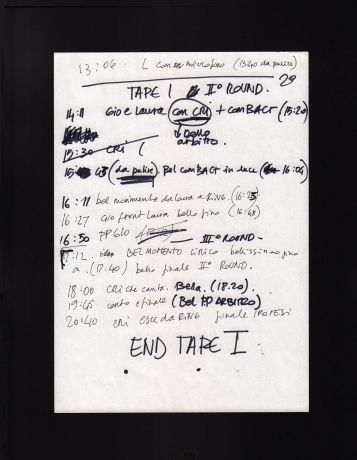 13:06 L con microfono (Bilo da pulire)
29
TAPE 1 IIº ROUND.
14:11 Gio e Laura con CRI + comBACT (15:20)
↓ bello
arbitro.
15:30 CRI (
15 (da pulire) Bel comBACT in luce (16:06)
16:11 bel movimento da Laura a RING. (16:23)
16:27 Gio front Laura bello fino (16:48)
16:50 PP GIO IIIº ROUND.
17.12. BEL MOMENTO lirico bellissimo fino
a (17:40) bello finale IIº ROUND.
18:00 CRI che canta. Bella. (18.20).
19:45 canto e finale (Bel PP ARBITRO)
20:40 CRI esce da RING finale IPOTESI
END TAPE I